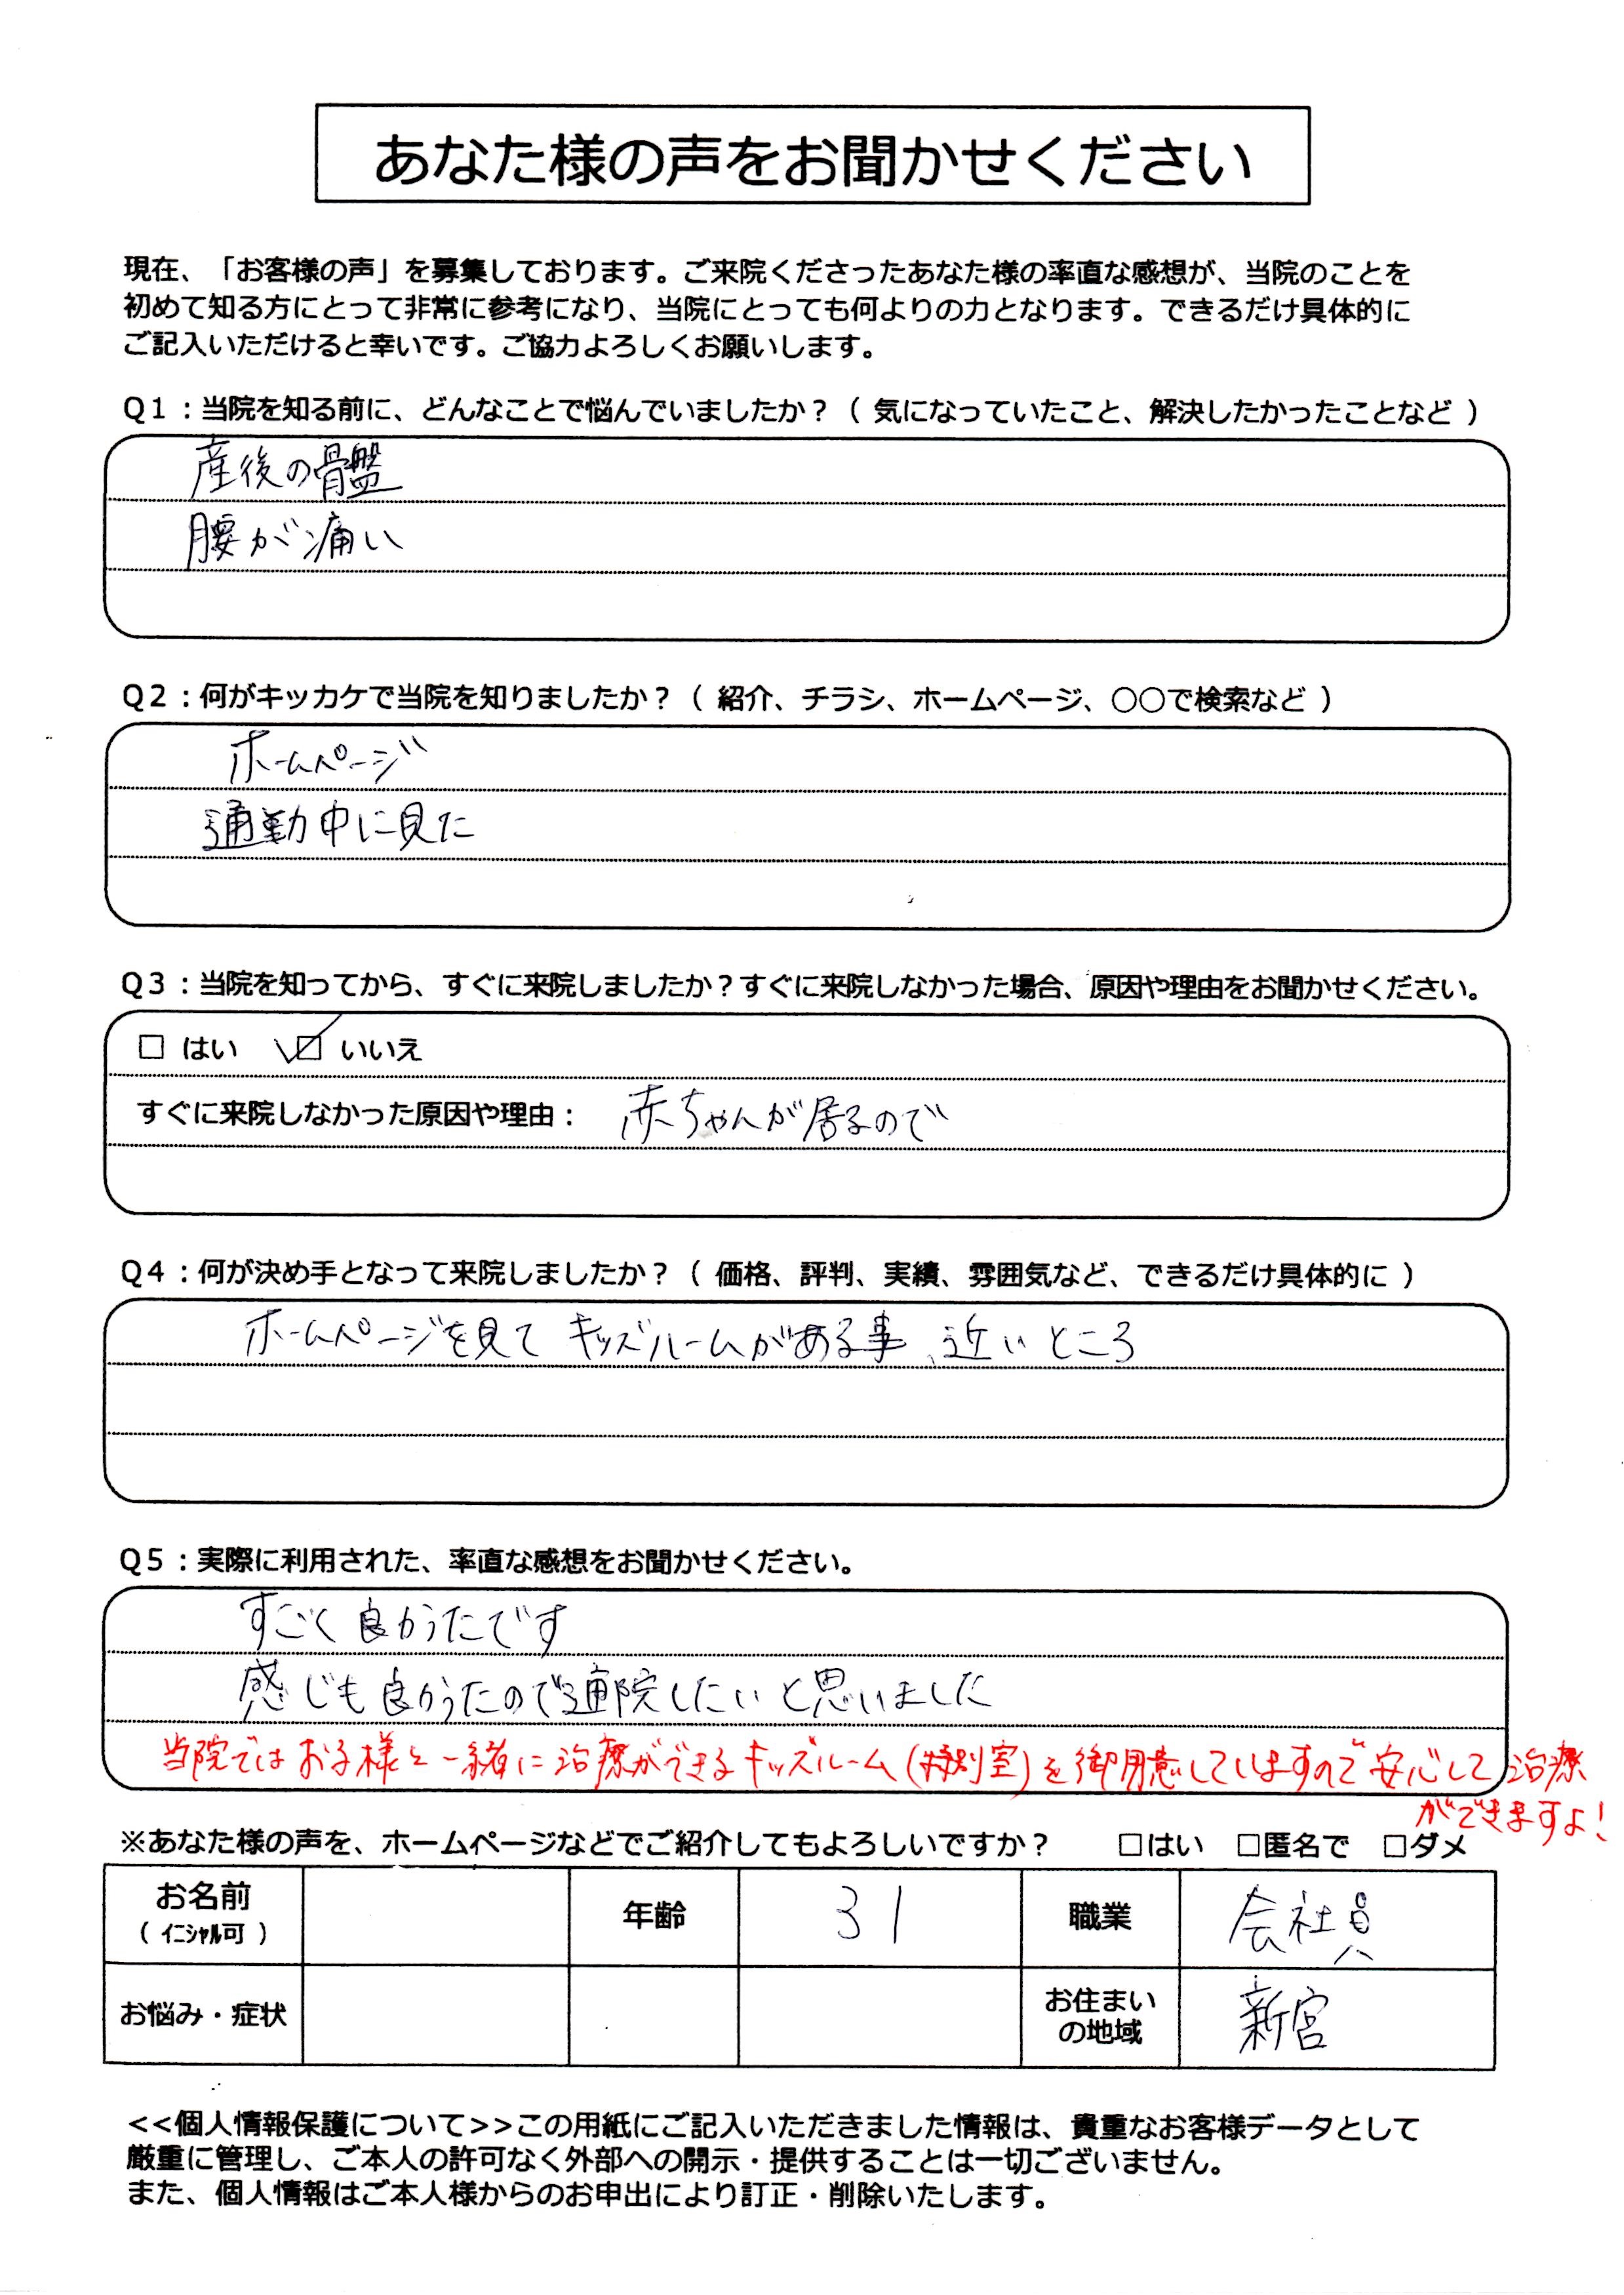 あなた様の声をお聞かせください
現在、「お客様の声」を募集しております。ご来院くださったあなた様の率直な感想が、当院のことを
初めて知る方にとって非常に参考になり、当院にとっても何よりの力となります。できるだけ具体的に
ご記入いただけると幸いです。ご協力よろしくお願いします。
Q1：当院を知る前に、どんなことで悩んでいましたか？（ 気になっていたこと、解決したかったことなど ）
産後の骨盤
腰が痛い
Q2：何がキッカケで当院を知りましたか？（ 紹介、チラシ、ホームページ、○○で検索など ）
ホームページ
通勤中に見た
Q3：当院を知ってから、すぐに来院しましたか？すぐに来院しなかった場合、原因や理由をお聞かせください。
□ はい ☑ いいえ
すぐに来院しなかった原因や理由： 赤ちゃんが居るので
Q4：何が決め手となって来院しましたか？（ 価格、評判、実績、雰囲気など、できるだけ具体的に ）
ホームページを見て キッズルームがある事、近いところ
Q5：実際に利用された、率直な感想をお聞かせください。
すごく良かったです
感じも良かったので通院したいと思いました
当院ではお子様と一緒に治療ができるキッズルーム(特別室)を御用意していますので安心して治療
ができますよ!
※あなた様の声を、ホームページなどでご紹介してもよろしいですか？ □はい □匿名で □ダメ
お名前 年齢 31 職業 会社員
（ イニシャル可 ）
お悩み・症状 お住まい 新宮
の地域
<<個人情報保護について>>この用紙にご記入いただきました情報は、貴重なお客様データとして
厳重に管理し、ご本人の許可なく外部への開示・提供することは一切ございません。
また、個人情報はご本人様からのお申出により訂正・削除いたします。